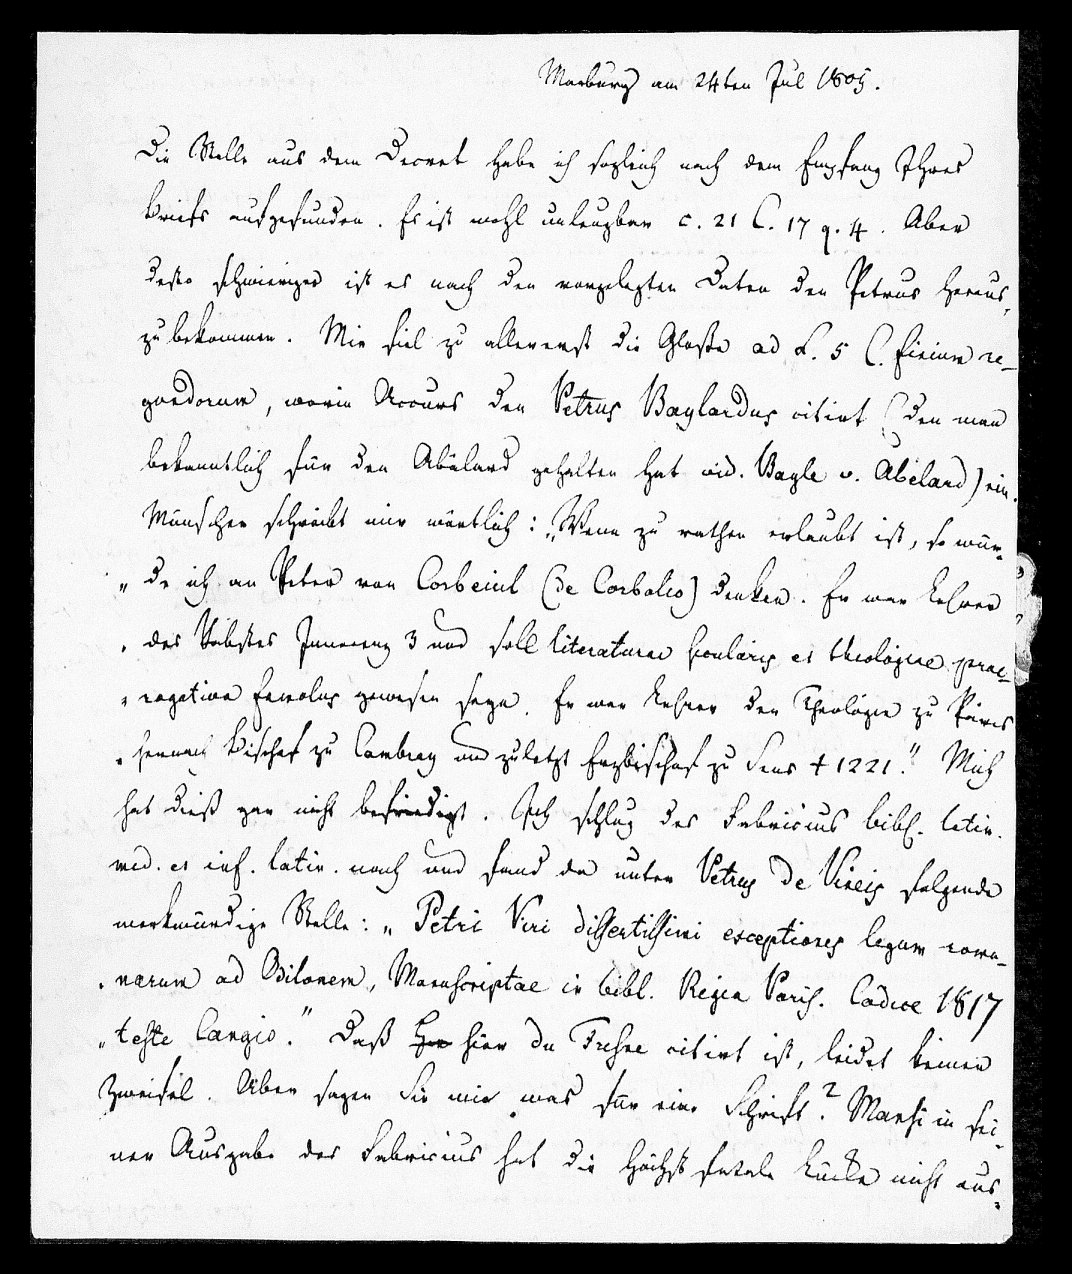 Marburg am 24ten Jul 1805.
Die Stelle aus dem Decret habe ich sogleich nach dem Empfang Ihres
Briefs aufgefunden. Es ist wohl unleugbar c. 21 C. 17 q. 4. Aber
desto schwieriger ist es nach den vorgelegten Daten den Petrus heraus-
zubekommen. Mir fiel zu allererst die Glosse ad L. 5 C. finium re-
gundorum, worin Accurs den Petrus Baylardus citirt (den man
bekanntlich für den Abälard gehalten hat vid. Bayle v. Abélard) ein.
Münscher schreibt mir wörtlich: „Wenn zu rathen erlaubt ist, so wür-
„de ich an Peter von Corbeiul (de Corbolio) denken. Er war Lehrer
„des Pabstes Innocenz 3 und soll literaturae secularis et theologicae prae-
„rogativa famolus gewesen seyn. Er war Lehrer der Theologie zu Paris
„hernach Bischof zu Cambray und zuletzt Erzbischof zu Sens † 1221.“ Mich
hat dieß gar nicht befriedigt. Ich schlug des Fabricius bibl. latin.
med. et inf. latin. nach und fand da unter Petrus de Vineis folgende
merkwürdige Stelle: „Petri Viri disertissimi exceptiones legum roma-
„narum ad Odilonem, Manuscriptae in bibl. Regia Paris. Codice 1817
„teste Cangio.“ Daß hier du Fresne citirt ist, leidet keinen
Zweifel. Aber sagen Sie mir was für eine Schrift? Mansi in sei-
ner Ausgabe des Fabricius hat die höchst fatale Lücke nicht aus-